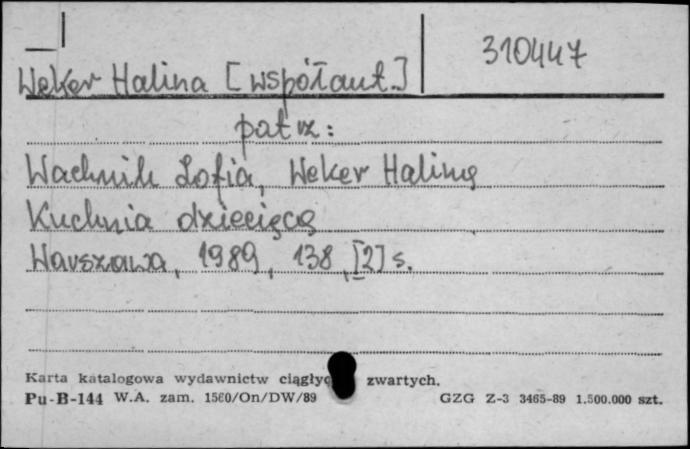 310447
Weker Halina [współaut.]
patrz:
Wachnik Zofia, Weker Halina
Kuchnia dziecięca
Warszawa, 1989, 138, [2] s.
Karta katalogowa wydawnictw zwartych.
Pu-B-144 W.A. zam. 1560/On/DW/89 GZG Z-3 3465-89 1.500.000 szt.